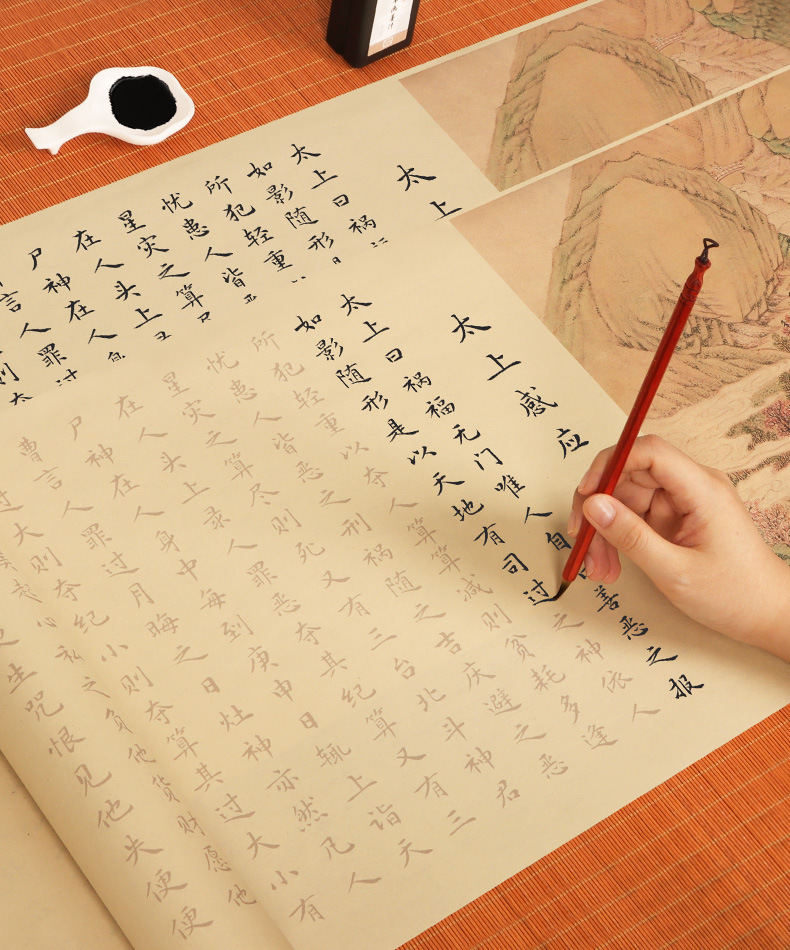 太上
太上曰祸
如影随形
所犯轻重
忧患人皆
星灾之算
在人头上
尸神在人
言人罪过
则
太上感应
太上曰祸福无门唯人自善恶之报
如影随形是以天地有司过之神依人
所犯轻重以夺人算算减则贫耗多逢
忧患人皆恶之刑祸随之吉庆避之恶
星灾之算尽则死又有三台北斗神君
在人头上录人罪恶夺其纪算又有三
尸神在人身中每到庚申日辄上诣天
曹言人罪过月晦之日灶神亦然凡人
过大则夺纪小则夺算其过大小有
心私之负他货财愿他
生咒恨见他失便便